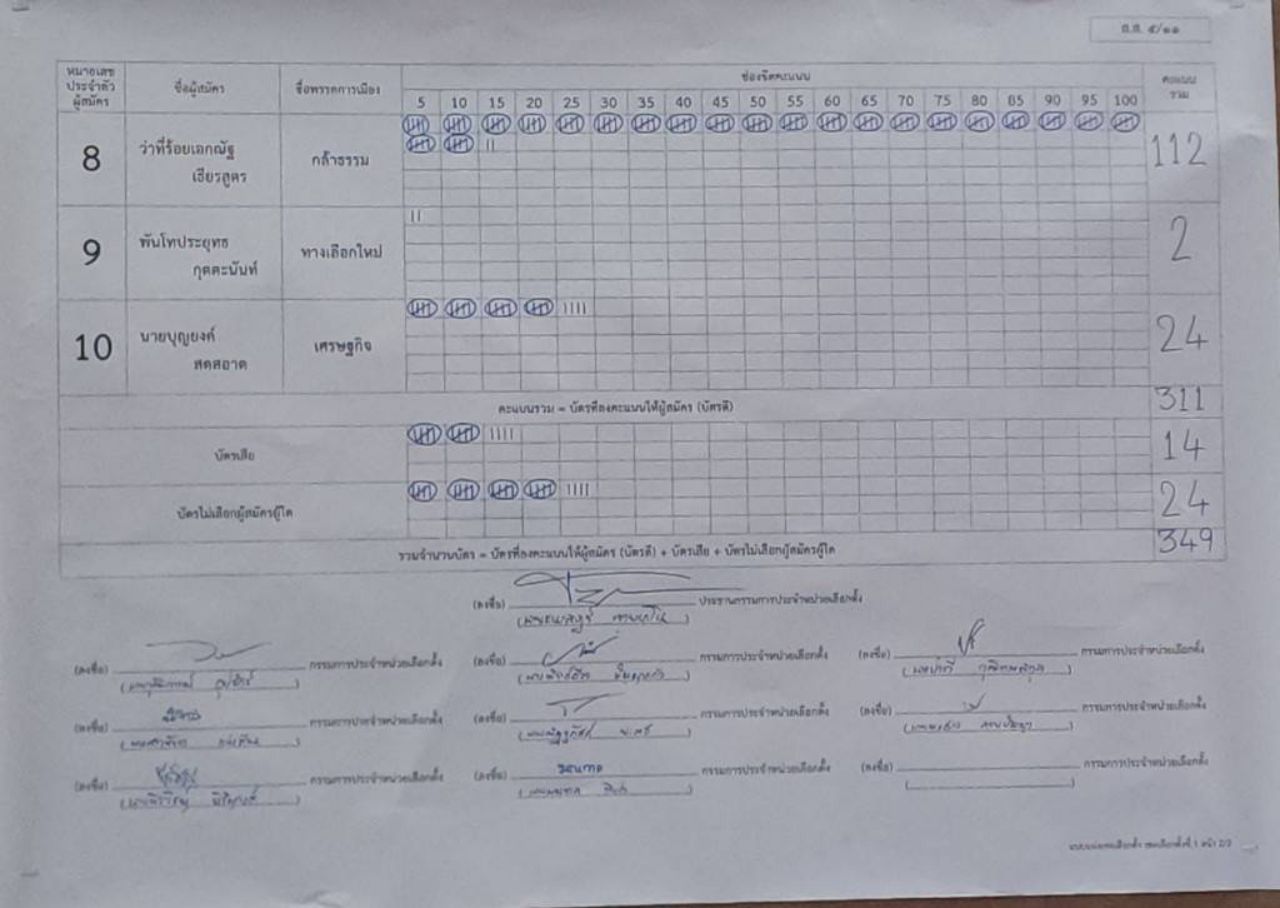 ส.ส. ๕/๑๑
หมายเลขประจำตัวผู้สมัคร ชื่อผู้สมัคร ชื่อพรรคการเมือง ช่องขีดคะแนน คะแนนรวม
5 10 15 20 25 30 35 40 45 50 55 60 65 70 75 80 85 90 95 100
8 ว่าที่ร้อยเอกณัฐ เธียรสูตร กล้าธรรม 112
9 พันโทประยุทธ กุตตะนันท์ ทางเลือกใหม่ 2
10 นายบุญยงค์ สดสอาด เศรษฐกิจ 24
คะแนนรวม = บัตรที่ลงคะแนนให้ผู้สมัคร (บัตรดี) 311
บัตรเสีย 14
บัตรไม่เลือกผู้สมัครผู้ใด 24
รวมจำนวนบัตร = บัตรที่ลงคะแนนให้ผู้สมัคร (บัตรดี) + บัตรเสีย + บัตรไม่เลือกผู้สมัครผู้ใด 349
(ลงชื่อ) ประธานกรรมการประจำหน่วยเลือกตั้ง
(ลงชื่อ) กรรมการประจำหน่วยเลือกตั้ง (ลงชื่อ) กรรมการประจำหน่วยเลือกตั้ง (ลงชื่อ) กรรมการประจำหน่วยเลือกตั้ง
(ลงชื่อ) กรรมการประจำหน่วยเลือกตั้ง (ลงชื่อ) กรรมการประจำหน่วยเลือกตั้ง (ลงชื่อ) กรรมการประจำหน่วยเลือกตั้ง
(ลงชื่อ) กรรมการประจำหน่วยเลือกตั้ง (ลงชื่อ) กรรมการประจำหน่วยเลือกตั้ง (ลงชื่อ) กรรมการประจำหน่วยเลือกตั้ง